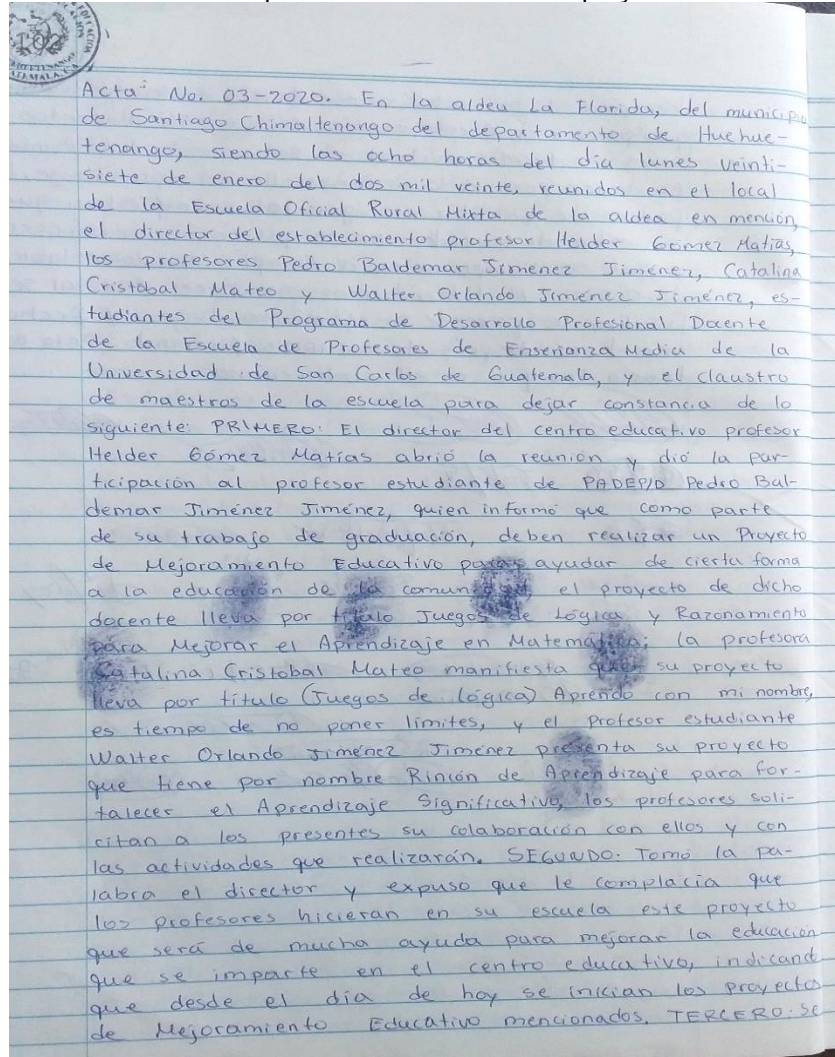 Acta No. 03-2020. En la aldea La Florida, del municipio
de Santiago Chimaltenango del departamento de Huehue-
tenango, siendo las ocho horas del día lunes veinti-
siete de enero del dos mil veinte, reunidos en el local
de la Escuela Oficial Rural Mixta de la aldea en mención,
el director del establecimiento profesor Helder Gómez Matías,
los profesores Pedro Baldemar Jimenez Jimenez, Catalina
Cristobal Mateo y Walter Orlando Jiménez Jiménez, es-
tudiantes del Programa de Desarrollo Profesional Docente
de la Escuela de Profesores de Enseñanza Media de la
Universidad de San Carlos de Guatemala, y el claustro
de maestros de la escuela para dejar constancia de lo
siguiente: PRIMERO: El director del centro educativo profesor
Helder Gómez Matías abrió la reunión y dió la par-
ticipación al profesor estudiante de PADEP/D Pedro Bal-
demar Jiménez Jiménez, quien informó que como parte
de su trabajo de graduación, deben realizar un Proyecto
de Mejoramiento Educativo para ayudar de cierta forma
a la educación de la comunidad el proyecto de dicho
docente lleva por título Juegos de Lógica y Razonamiento
para Mejorar el Aprendizaje en Matemática; la profesora
Catalina Cristobal Mateo manifiesta que su proyecto
lleva por título (Juegos de lógica) Aprendo con mi nombre,
es tiempo de no poner límites, y el profesor estudiante
Walter Orlando Jiménez Jiménez presenta su proyecto
que tiene por nombre Rincón de Aprendizaje para for-
talecer el Aprendizaje Significativo, los profesores soli-
citan a los presentes su colaboración con ellos y con
las actividades que realizarán. SEGUNDO: Tomó la pa-
labra el director y expuso que le complacía que
los profesores hicieran en su escuela este proyecto
que será de mucha ayuda para mejorar la educación
que se imparte en el centro educativo, indicand
que desde el día de hoy se inician los proyectos
de Mejoramiento Educativo mencionados. TERCERO: Se